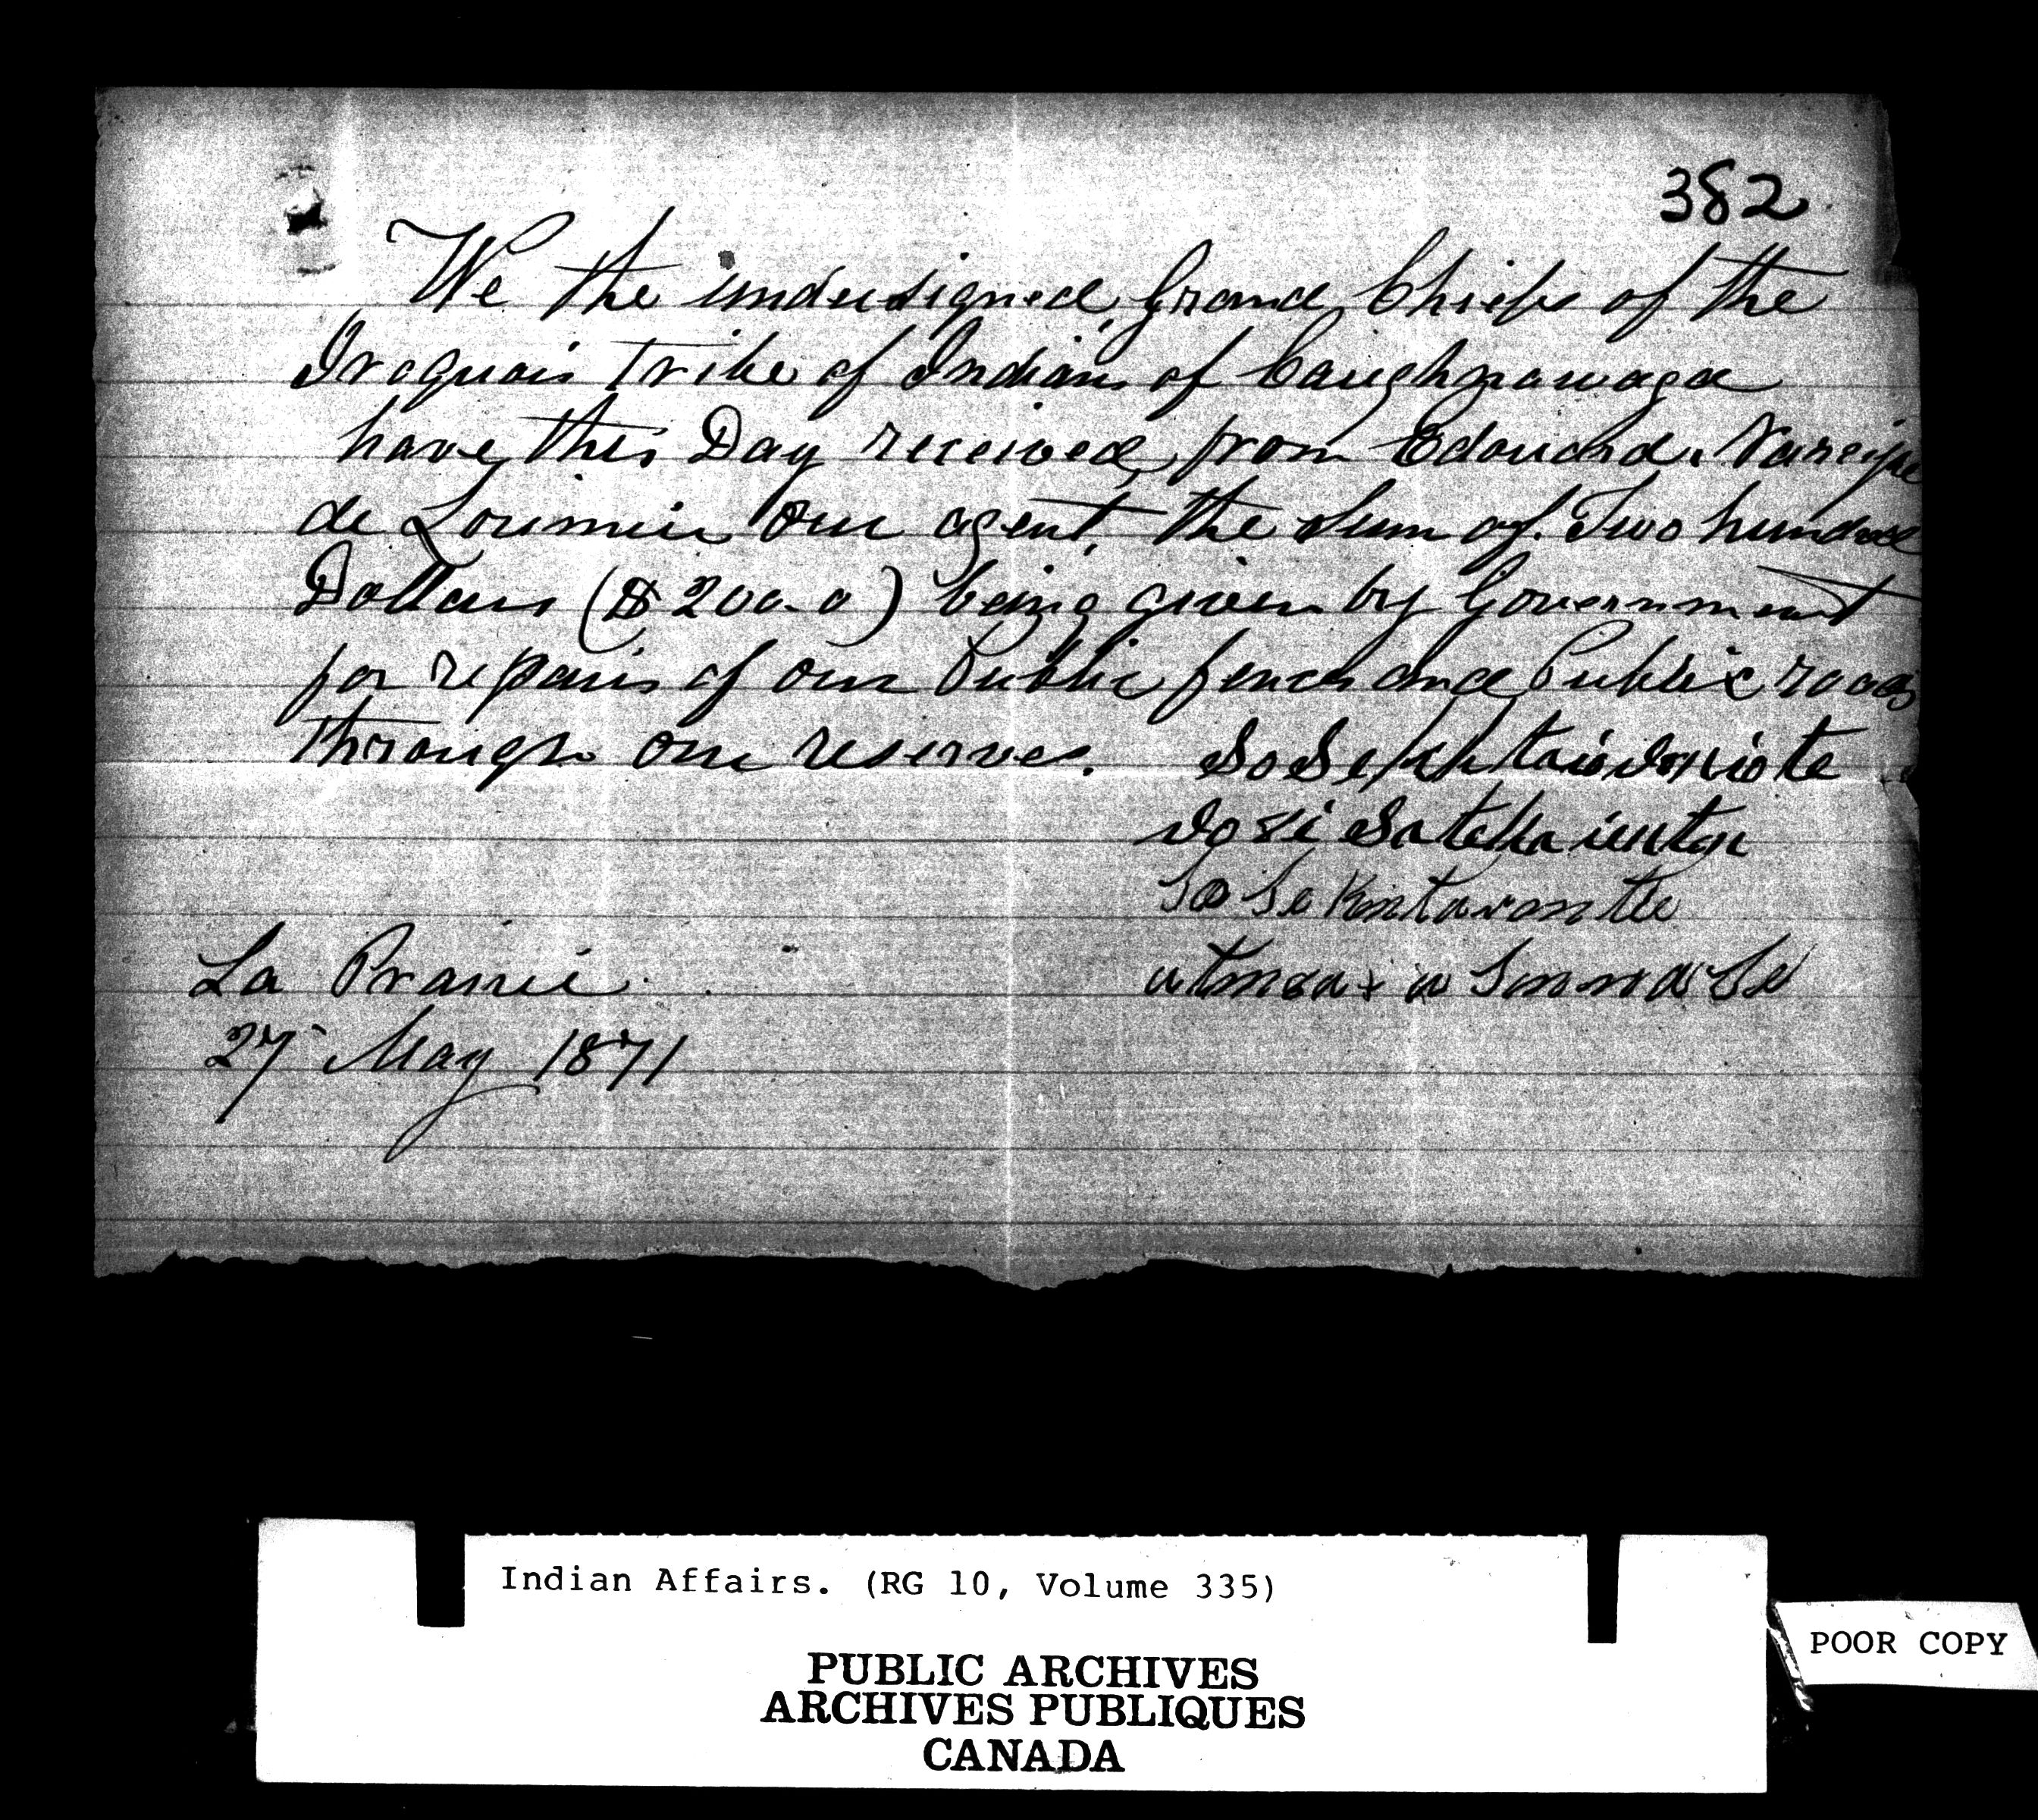 382
We the undersigned, Grand Chiefs of the
Iroquois Tribe of Indians of Caughnawaga
have this Day received, from Edouard. Narcisse
de Lorimier our agent, the sum of. Two hundred
Dollars ($ 200.0) being given by Government
for repairs of our Public fences and Public roads
through our reserves.
Sose
La Prairie
27 May 1871
Indian Affairs. (RG 10, Volume 335)
PUBLIC ARCHIVES
ARCHIVES PUBLIQUES
CANADA
POOR COPY